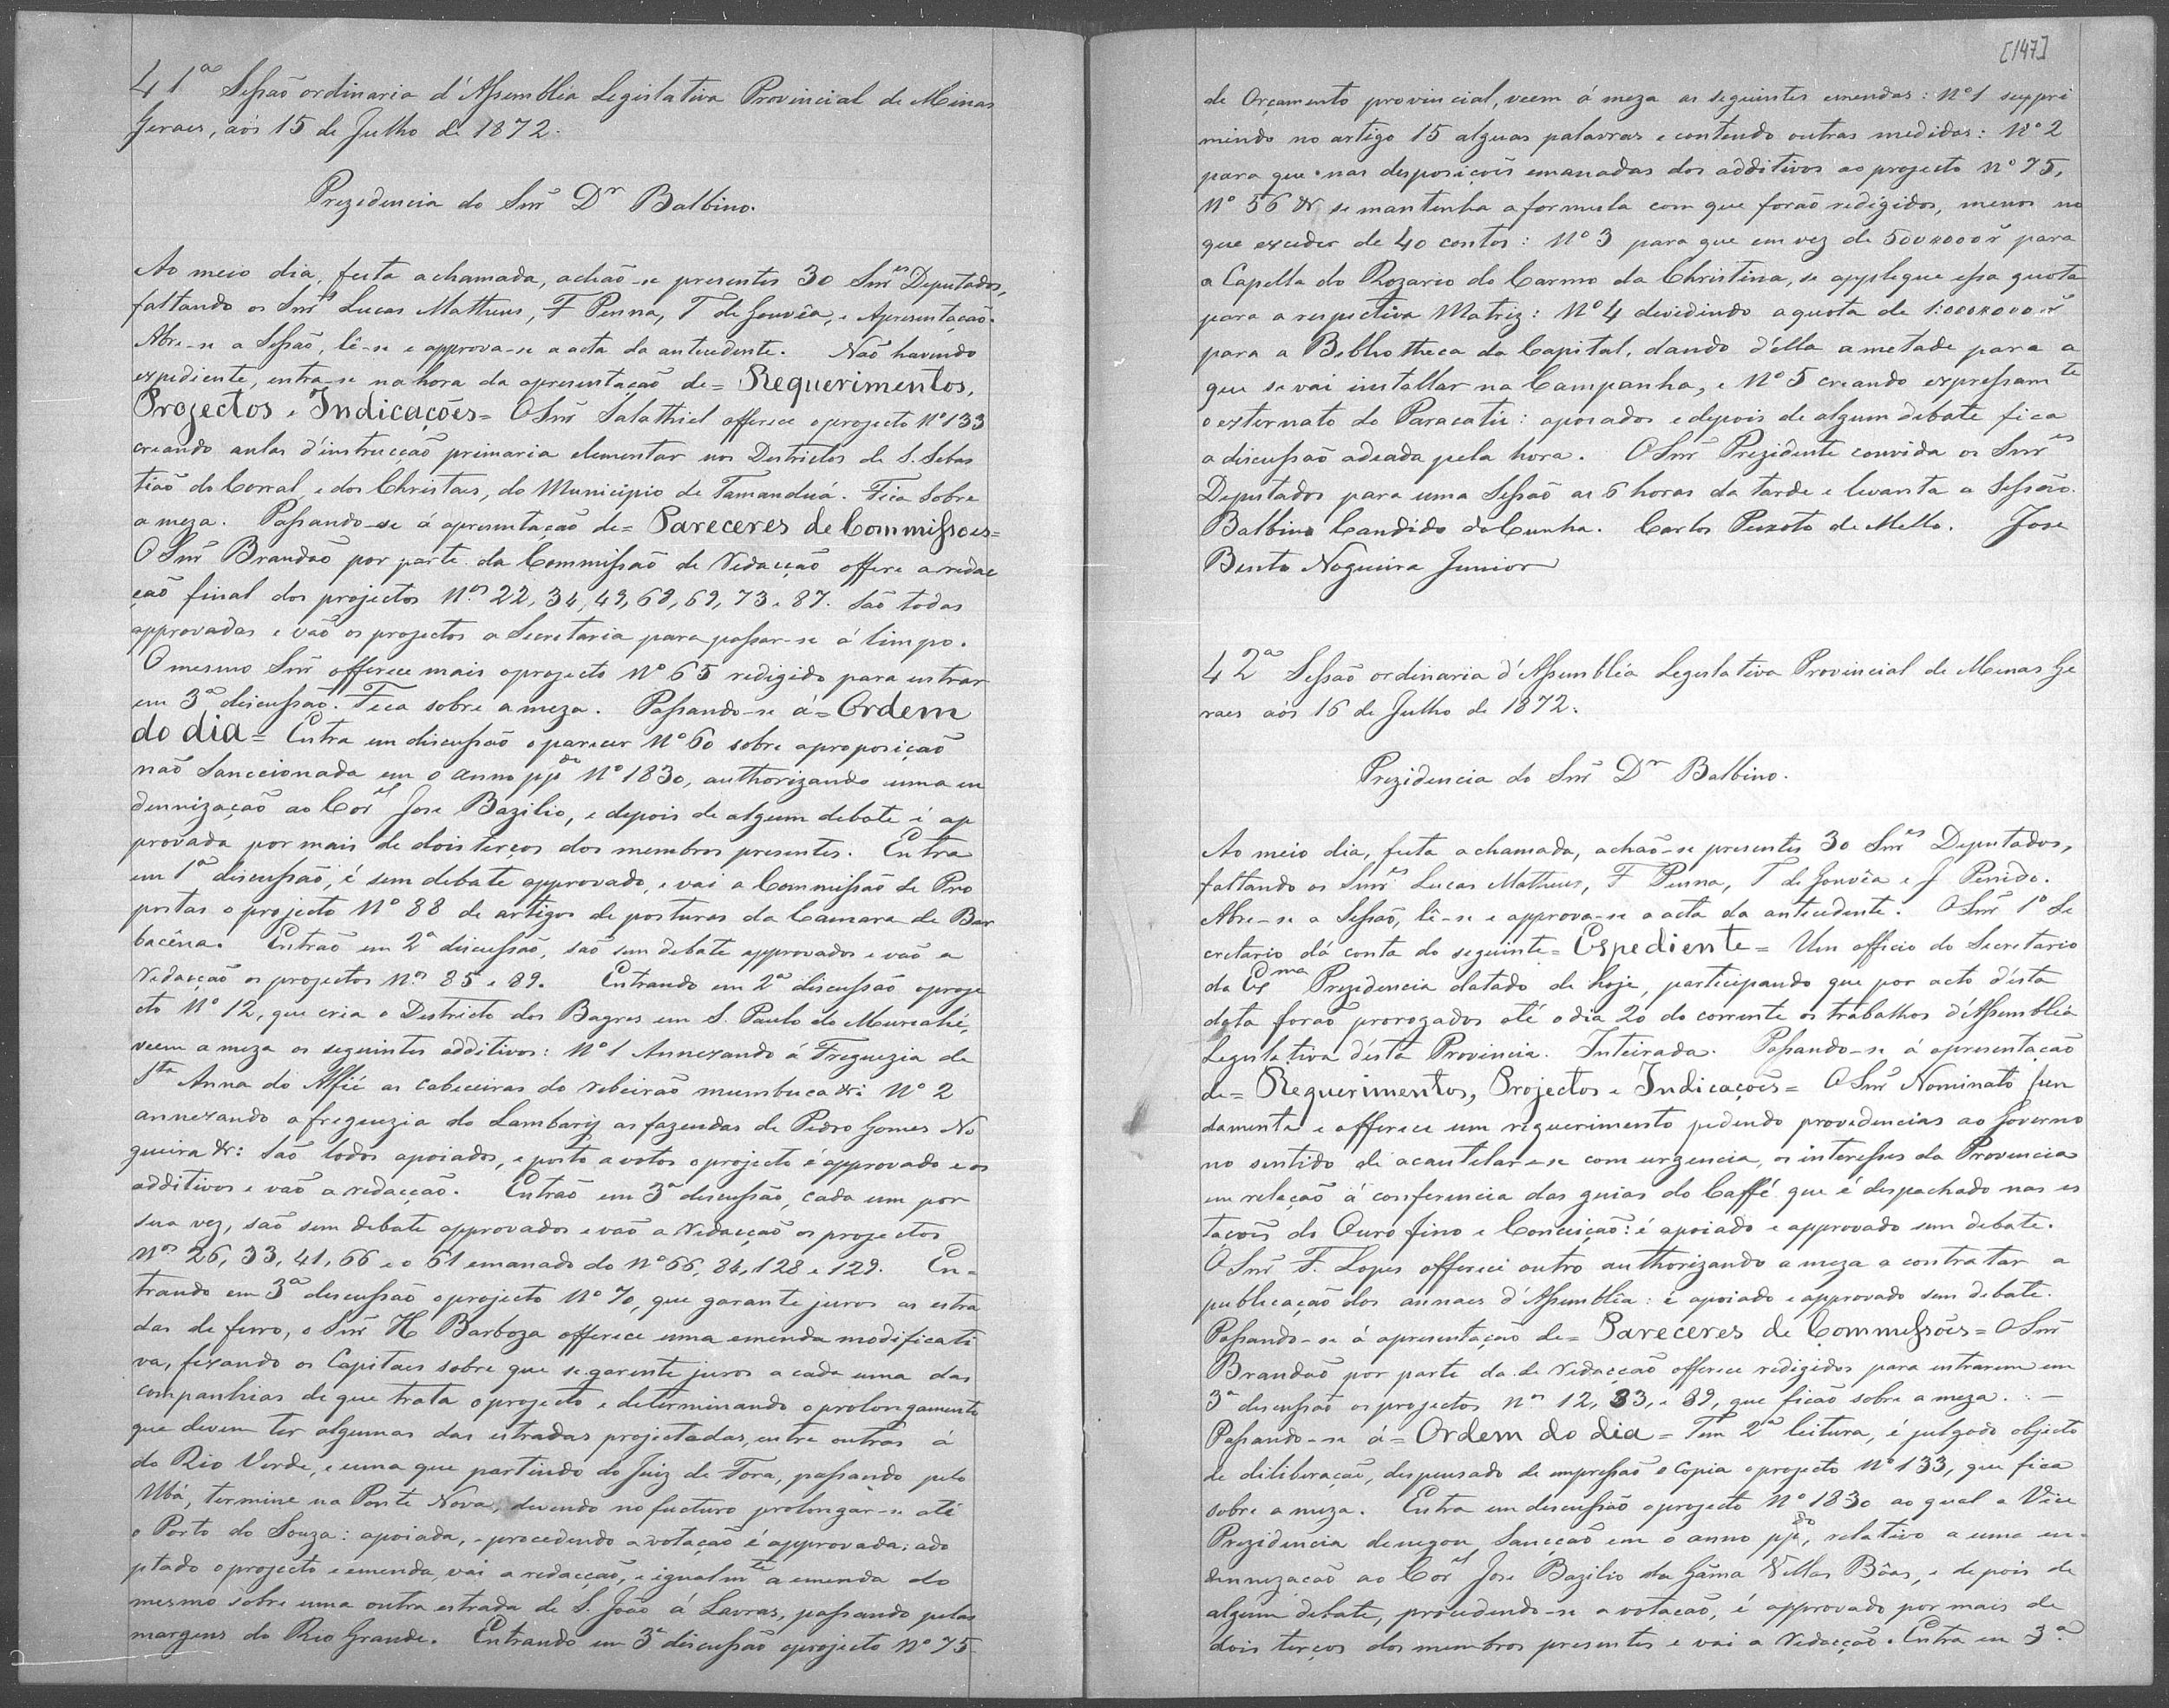 41ª Sessão ordinaria d'Assembléa Legislativa Provincial de Minas
Geraes, aós 15 de Julho de 1872.
Prezidencia do Snr Dr Balbino.
Ao meio dia, feita a chamada, achão-se presentes 30 Snres Deputados,
faltando os Snrs Lucas Matheus, F Penna, T de Gouvêa, e Apresentação.
Abre-se a Sessão, lê-se e approva-se a acta da antecedente. Não havendo
expediente, entra-se na hora da apresentação de = Requerimentos,
Projectos e Indicações = O Snr Salathiel offerece o projecto Nº 133
creando aulas d'instrucção primaria elementar nos Districtos de S. Sebas
tião do Corral, e dos Christaes, do Municipio de Tamanduá. Fica sobre
a meza. Passando-se á apresentação de = Pareceres de Commissoes =
O Snr Brandão por parte da Commissão de Redacção offere a redac
ção final dos projectos Nos 22, 34, 49, 68, 69, 73 e 87. São todas
approvadas e vão os projectos a Secretaria para passar-se á limpo.
O mesmo Snr offerece mais o projecto Nº 65 redigido para entrar
em 3ª discussão. Fica sobre a meza. Passando-se á = Ordem
do dia = Entra em discussão o parecer Nº 60 sobre a proposição
não Sanccionada em o anno ppdo Nº 1830, authorizando uma in
demnização ao Corel Jose Bazilio, e depois de algum debate é ap
provada por mais de dois terços dos membros presentes. Entra
em 1ª discussão, é sem debate approvado, e vai a Commissão de Pro
postas o projecto Nº 88 de artigos de posturas da Camara de Bar
bacêna. Entrão em 2ª discussão, são sem debate approvados e vão a
Redacção os projectos Nos 85 e 89. Entrando em 2ª discussão o proje
cto Nº 12, que cria o Districto dos Bagres em S. Paulo do Muriahé,
veem a meza os seguintes additivos: Nº 1 Annexando á Freguezia de
Sta Anna do Alfié as cabeceiras do ribeirão mumbuca &: Nº 2
annexando a freguezia do Lambary as fazendas de Pedro Gomes No
gueira &: São todos apoiados, e posto a votos o projecto é approvado e os
additivos e vão a redacção. Entrão em 3ª discussão, cada um por
sua vez, são sem debate approvados e vão a Redacção os projectos
Nos 26, 33, 41, 66 e o 61 emanado do Nº 66, 84, 128 e 129. En-
trando em 3ª discussão o projecto Nº 70, que garante juros as estra
das de ferro, o Snr H Barboza offerece uma emenda modificati
va, fixando os Capitaes sobre que se garente juros a cada uma das
companhias de que trata o projecto e determinando o prolongamento
que devem ter algumas das estradas projectadas, entre outras á
do Rio Verde, e uma que partindo do Juiz de Fora, passando pelo
Ubá, termine na Ponte Nova, devendo no futuro prolongar-se até
o Porto do Souza: apoiada, e procedendo a votação é approvada: ado
ptado o projecto e emenda, vai a redacção, e igualmte a emenda do
mesmo sobre uma outra estrada de S. João á Lavras, passando pelas
margens do Rio Grande. Entrando em 3ª discussão o projecto Nº 75
[147]
de Orçamento provincial, veem á meza as seguintes emendas: Nº 1 suppri
mindo no artigo 15 alguas palavras e contendo outras medidas: Nº 2
para que nas disposiçoẽs emanadas dos additivos ao projecto nº 75,
Nº 56 & se mantenha a formula com que forão redigidos, menos no
que exceder de 40 contos: Nº 3 para que em vez de 500#000 r para
a Capella do Rozario do Carmo da Christina, se applique essa quota
para a respectiva Matriz: Nº 4 devidindo a quota de 1:000#000 r
para a Bibliotheca da Capital, dando d'élla a metade para a
que se vai installar na Campanha, e Nº 5 creando expressamte
o externato do Paracatú: apoiados e depois de algum debate fica
a discussão adeada pela hora. O Snr Prezidente convida os Snres
Deputados para uma Sessão as 6 horas da tarde e levanta a Sessão.
Balbino Candido da Cunha. Carlos Peixoto de Mello. Jose
Bento Nogueira Junior
42ª Sessão ordinaria d'Assembléa Legislativa Provincial de Minas Ge
raes aós 16 de Julho de 1872.
Prezidencia do Snr Dr Balbino.
Ao meio dia, feita a chamada, achão-se presentes 30 Snres Deputados,
faltando os Snrs Lucas Matheus, F Penna, T de Gouvêa e J Penido.
Abre-se a Sessão, lê-se e approva-se a acta da antecedente. O Snr 1º Se
cretario dá conta do seguinte = Expediente = Um officio do Secretario
da Exma Prezidencia datado de hoje, participando que por acto d'ésta
data forão prorogados até o dia 20 do corrente os trabalhos d'Assembléa
Legislativa d'ésta Provincia. Inteirada. Passando-se á apresentação
de = Requerimentos, Projectos e Indicações = O Snr Nominato fun
damenta e offerece um requerimento pedindo providencias ao Governo
no sentido de acautelar-se com urgencia, os interesses da Provincia
em relação á conferencia das guias do Caffé que é despachado nas es
taçoẽs do Ouro fino e Conceição: é apoiado e approvado sem debate.
O Snr F. Lopes offerece outro authorizando a meza a contratar a
publicação dos annaes d'Assembléa: é apoiado e approvado sem debate.
Passando-se á apresentação de = Pareceres de Commissões = O Snr
Brandão por parte da de Redacção offerece redigidos para entrarem em
3ª discussão os projectos nos 12, 83, e 89, que ficão sobre a meza. —
Passando-se á = Ordem do dia = Tem 2ª leitura, é julgado objecto
de diliberação, dispensado de impressão e copia o projecto Nº 133, que fica
sobre a meza. Entra em discussão o projecto Nº 1830 ao qual a Vice
Prezidencia denegou Sancção em o anno ppdo, relativo a uma in-
demnização ao Corel Jose Bazilio da Gâma Villas Bôas, e depois de
algum debate, procedendo-se a votação, é approvado por mais de
dois terços dos membros presentes e vai a Redacção. Entra em 3ª